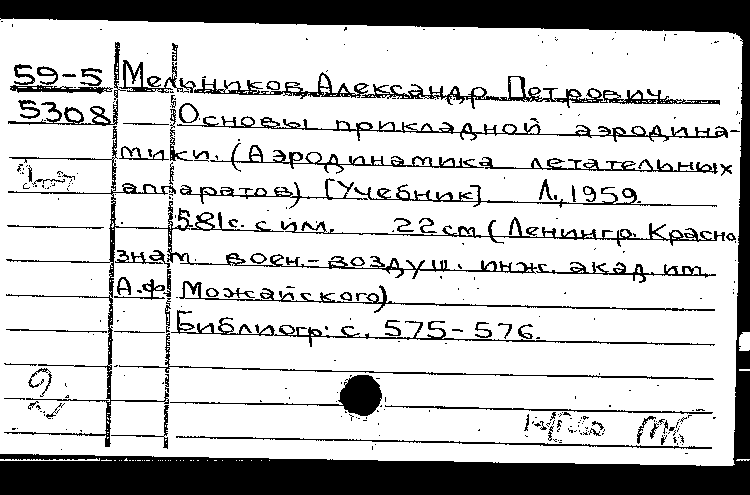 59-5 Мельников, Александр Петрович.
5308 Основы прикладной аэродина-
мики. (Аэродинамика летательных
аппаратов). [Учебник]. Л., 1959.
581с. с ил. 22см (Ленингр. Красно
знам. воен.-воздуш. инж. акад. им.
А.Ф. Можайского).
Библиогр: с. 575-576.
2